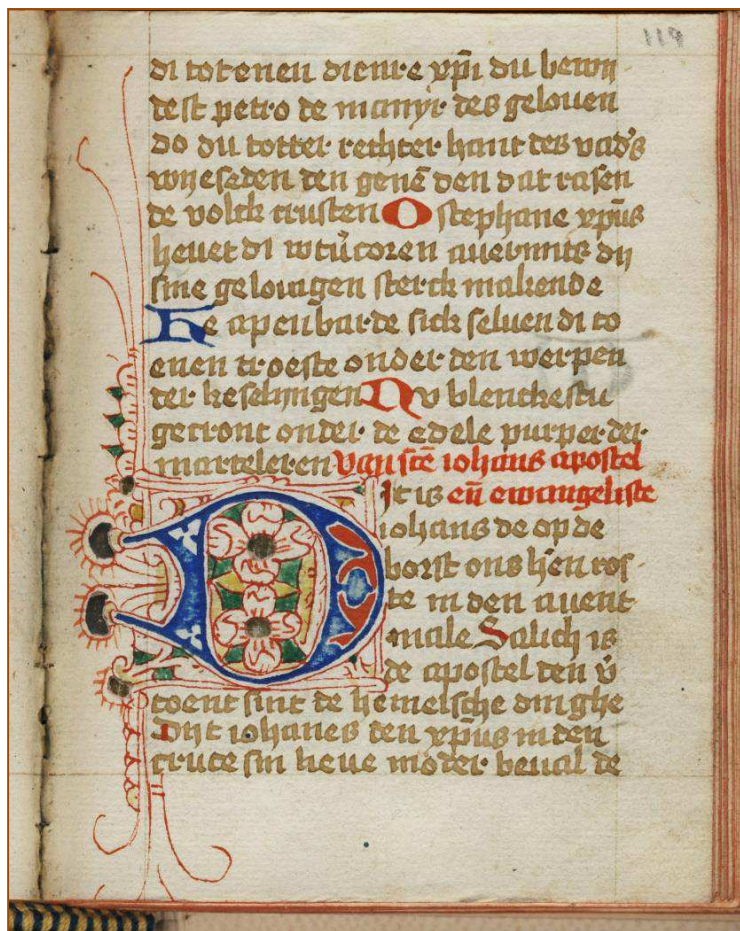 119
di tot enen dienre xp̄i du bewy
dest petro de manyr des gelouen
do du totter rechter hant des vad's
wyeseden den genē den dat rasen
de volck crusten O stephane xp̄us
heuet di
sine gelouigen sterck makende
He apenbarde sick seluen di to
enen troeste onder den werpen
der keselyngen Nv blenckestu
gecront onder de edele purper der
marteleren Van stē iohans apostel
Dit is eñ ewangeliste
iohans de op de
borst ons hēn ros
te in den auent
male Salich is
de apostel den v̄
toent sint de hemelsche dinghe
Dijt iohanes den xp̄us in den
cruce sin lieue moder beual de